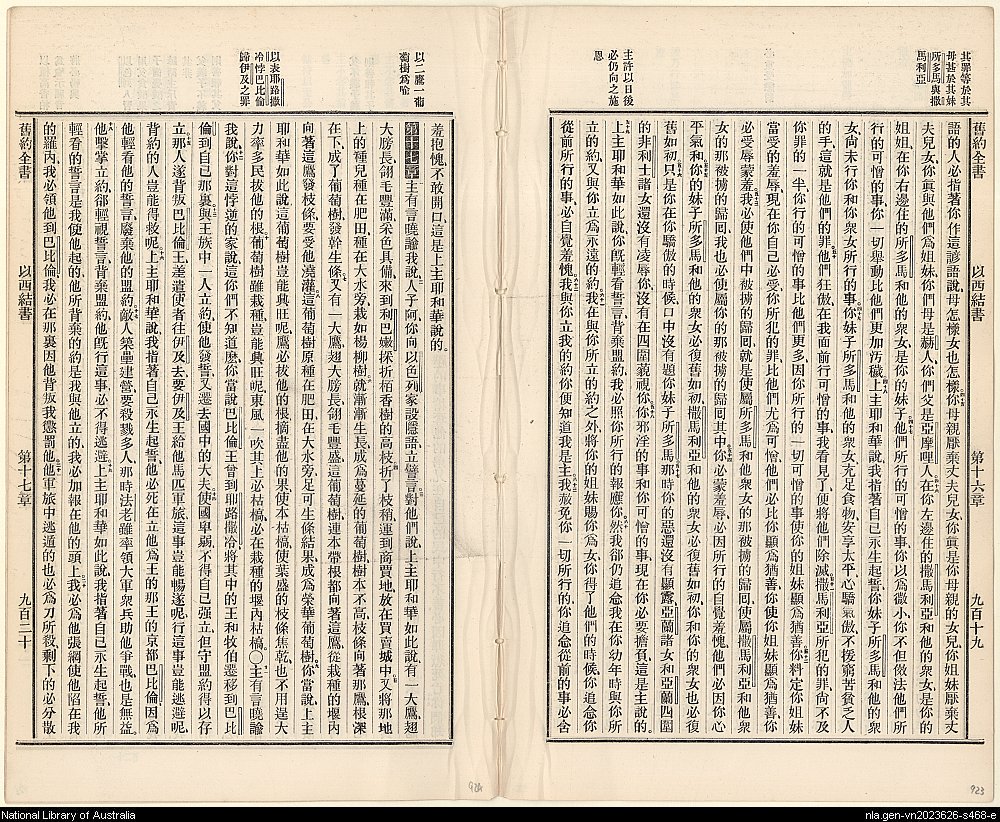 其罪等於其
母甚於其妹
所多馬與撒
馬利亞
主許以日後
必仍向之施
恩
舊約全書 以西結書 第十六章 九百十九
語的人必指著你作這諺語說母怎樣女也怎樣你母親厭棄丈夫兒女你眞是你母親的女兒你姐妹厭棄丈
夫兒女你眞與他們爲姐妹你們母是赫人你們父是亞摩哩人在你左邊住的撒馬利亞和他的衆女是你的
姐姐在你右邊住的所多馬和他的衆女是你的妹子他們所行的可憎的事你以爲微小你不但傚法他們所
行的可憎的事你一切舉動比他們更加汚穢上主耶和華說我指著自己永生起誓你妹子所多馬和他的衆
女尙未行你和你衆女所行的事你妹子所多馬和他的衆女充足食物安享太平心驕氣傲不援窮苦貧乏人
的手這就是他們的罪他們狂傲在我面前行可憎的事我看見了便將他們除滅撒馬利亞所犯的罪尙不及
你罪的一半你行的可憎的事比他們更多因你所行的一切可憎的事使你的姐妹顯爲猶善你料定你姐妹
當受的羞辱現在你自己必受你所犯的罪比他們尤爲可憎他們必比你顯爲猶善你使你姐妹顯爲猶善你
必受辱蒙羞我必使他們中被擄的歸回就是使屬所多馬和他衆女的那被擄的歸回使屬撒馬利亞和他衆
女的那被擄的歸回我也必使屬你的那被擄的歸回其中你必蒙羞辱必因所行的自覺羞愧他們必因你心
平氣和你的妹子所多馬和他的衆女必復舊如初撒馬利亞和他的衆女必復舊如初你和你的衆女也必復
舊如初只是你在你驕傲的時候口中沒有題你妹子所多馬那時你的惡還沒有顯露亞蘭諸女和亞蘭四圍
的非利士諸女還沒有凌辱你沒有在四圍藐視你你邪淫的事和你可憎的事現在你必要擔負這是主說的
上主耶和華如此說你旣輕看誓言背棄盟約我必照你所行的報應你然我卻仍追念我在你幼年時與你所
立的約又與你立爲永遠的約我在與你所立的約之外將你的姐妹賜你爲女你得了他們的時候你追念你
從前所行的事必自覺羞愧我與你立我的約你便知道我是主我赦免你一切所行的你追念從前的事必含
以二鷹一葡
萄樹爲喻
以表耶路撒
冷悖巴比倫
歸伊及之罪
羞抱愧不敢開口這是上主耶和華說的
第十七章主有言曉諭我說人子阿你向以色列家設隱語立譬言對他們說上主耶和華如此說有一大鷹翅
大膀長翎毛豐滿采色具備來到利巴嫩採折栢香樹的高枝折了枝稍運到商賈地放在買賣城中又將那地
上的種兒種在肥田種在大水旁栽如楊柳樹就漸漸生長成爲蔓延的葡萄樹樹本不高枝條向著那鷹根深
在下成了葡萄樹發幹生條又有一大鷹翅大膀長翎毛豐盛這葡萄樹連本帶根都向著這鷹從栽種的堰內
向著這鷹發枝條要受他澆灌這葡萄樹原種在肥田在大水旁足可生條結果成爲榮華葡萄樹你當說上主
耶和華如此說這葡萄樹豈能興旺呢鷹必拔他的根摘盡他的果使本枯槁使葉盛的枝條焦乾也不用逞大
力率多民拔他的根葡萄樹雖栽種豈能興旺呢東風一吹其上必枯槁必在栽種的堰內枯槁〇主有言曉諭
我說你對這悖逆的家說這你們不知道麽你當說巴比倫王曾到耶路撒冷將其中的王和牧伯遷移到巴比
倫到自己那裏與王族中一人立約使他發誓又遷去國中的大夫使國卑弱不得自己强立但守盟約得以存
立那人遂背叛巴比倫王差遣使者往伊及去要伊及王給他馬匹軍旅這事豈能暢遂呢行這事豈能逃避呢
背約的人豈能得救呢上主耶和華說我指著自己永生起誓他必死在立他爲王的那王的京都巴比倫因爲
他輕看他的誓言廢棄他的盟約敵人築壘建營要殺戮多人那時法老雖率領大軍衆兵助他爭戰也是無益
他擊掌立約卻輕視誓言背棄盟約他旣行這事必不得逃避上主耶和華如此說我指著自己永生起誓他所
輕看的誓言是我使他起的他所背棄的約是我與他立的我必加報在他的頭上我必爲他張網使他陷在我
的羅內我必領他到巴比倫我必在那裏因他背叛我懲罰他他軍旅中逃遁的也必爲刀所殺剩下的必分散
舊約全書 以西結書 第十七章 九百二十
924
923
National Library of Australia
nla.gen-vn2023626-s468-e